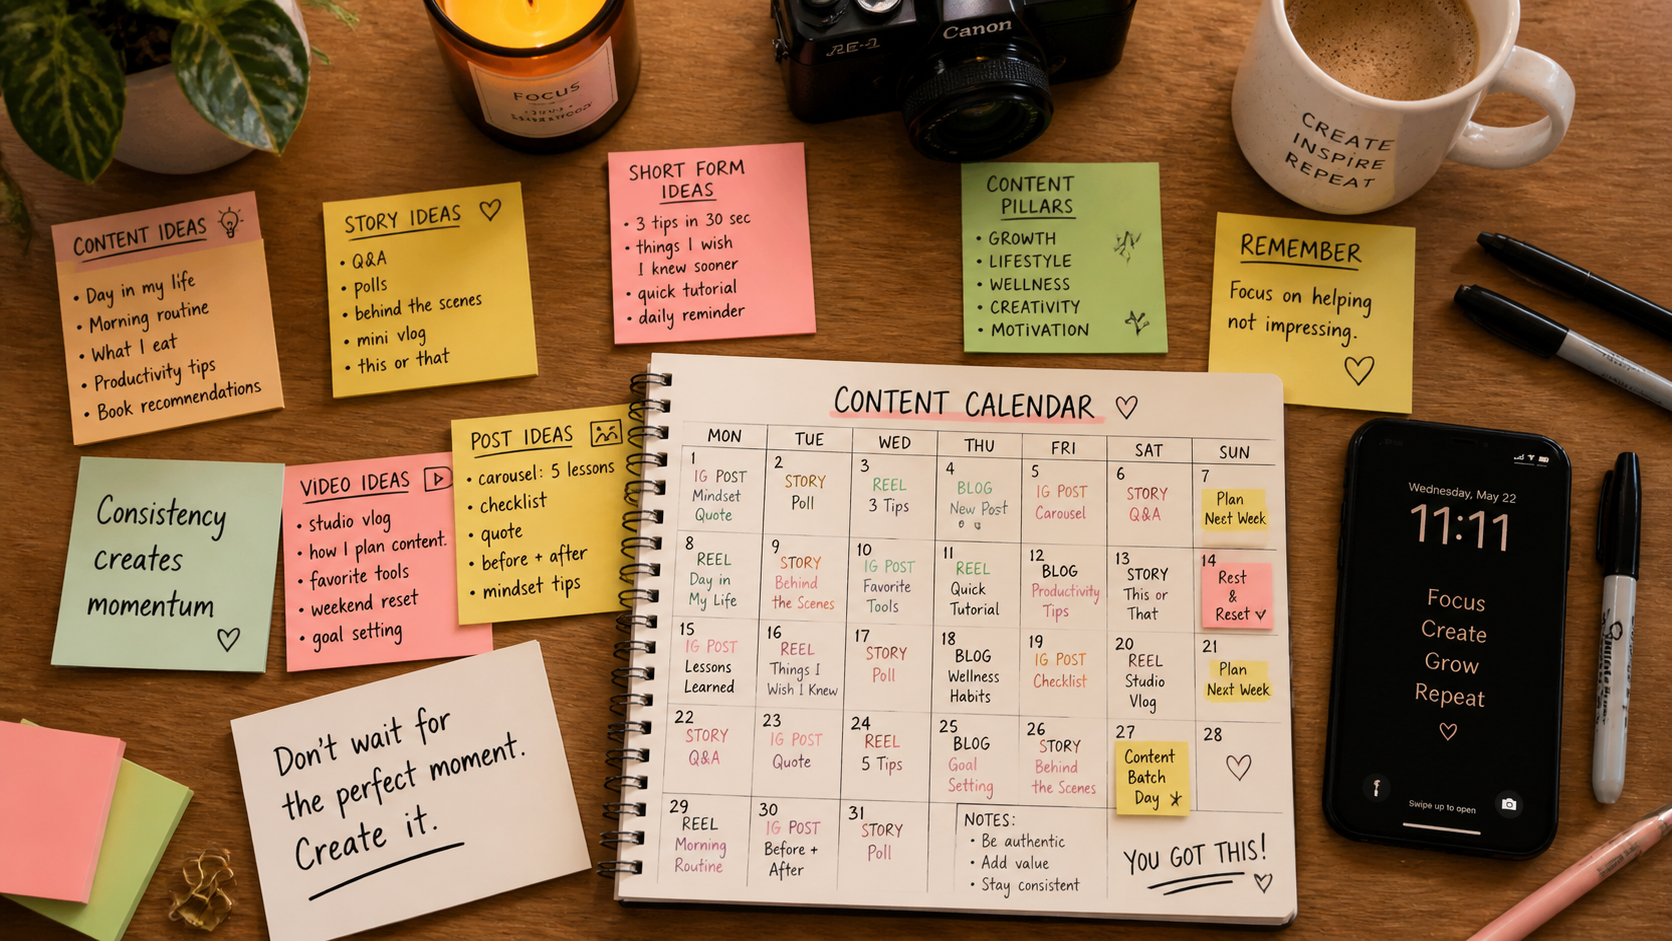 FOCUS
AE-1
Canon
CREATE
INSPIRE
REPEAT
CONTENT IDEAS
• Day in my life
• Morning routine
• What I eat
• Productivity tips
• Book recomnendations
STORY IDEAS
• Q&A
• polls
• behind the scenes
• mini vlog
• this or that
SHORT FORM
IDEAS
• 3 tips in 30 sec
• things I wish
I knew sooner
• quick tutorial
• daily reminder
CONTENT
PILLARS
• GROWTH
• LIFESTYLE
• WELLNESS
• CREATIVITY
• MOTIVATION
REMEMBER
Focus on helping
not impressing.
Consistency
creates
momentum
VIDEO IDEAS
• studio vlog
• how I plan content.
• favorite tools
• weekend reset
• goal setting
POST IDEAS
• carousel: 5 lessons
• checklist
• quote
• before + after
• mindset tips
Don't wait for
the perfect moment.
Create it.
CONTENT CALENDAR
MON TUE WED THU FRI SAT SUN
1
IG POST
Mindset
Quote
2
STORY
Poll
3
REEL
3 Tips
4
BLOG
New Post
5
IG POST
Carousel
6
STORY
Q&A
7
Plan
Neet Week
8
REEL
Day in
My Life
9
STORY
Behind
the Scenes
10
IG POST
Favorite
Tools
11
REEL
Quick
Tutorial
12
BLOG
Productivity
Tips
13
STORY
This or
That
14
Rest
&
Reset
15
IG POST
Lessons
Learned
16
REEL
Things I
Wish I Knew
17
STORY
Poll
18
BLOG
Wellness
Habits
19
IG POST
Checklist
20
REEL
Studio
Vlog
21
Plan
Next Week
22
STORY
Q&A
23
IG POST
Quote
24
REEL
5 Tips
25
BLOG
Goal
Setting
26
STORY
Behind
the Scenes
27
Content
Batch
Day
28
29
REEL
Morning
Routine
30
IG POST
Before +
After
31
STORY
Poll
NOTES:
• Be authentic
• Add value
• Stay consistent
YOU GOT THIS!
Wednesday, May 22
11:11
Focus
Create
Grow
Repeat
Swipe up to open